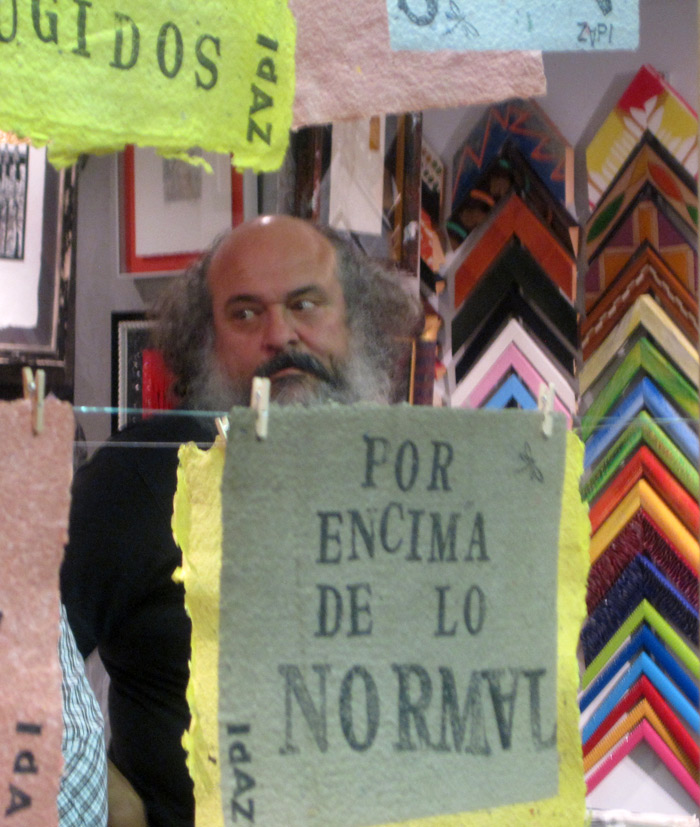 UGIDOS
ZAPI
ZAPI
POR
ENCIMA
DE LO
NORMAL
ZAPI
API